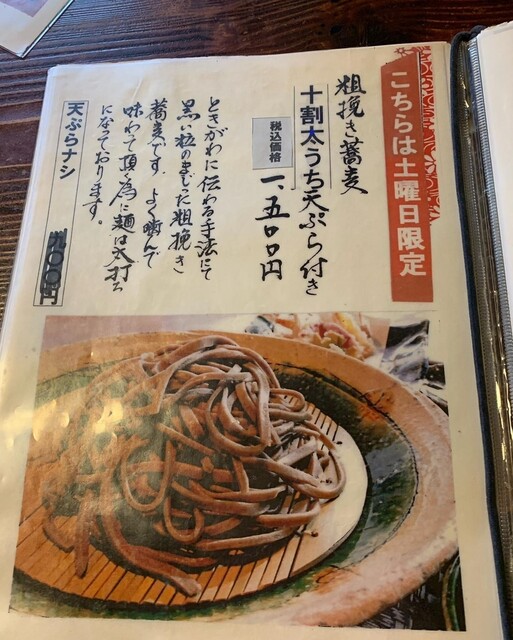 こちらは土曜日限定
粗挽き蕎麦
十割太うち天ぷら付き
税込価格
一、五〇〇円
ときがわに伝わる手法にて
黒い粒のまじった粗挽き
蕎麦です。よく噛んで
味わって頂く為に麺は太打ち
になっております。
天ぷらナシ
九〇〇円